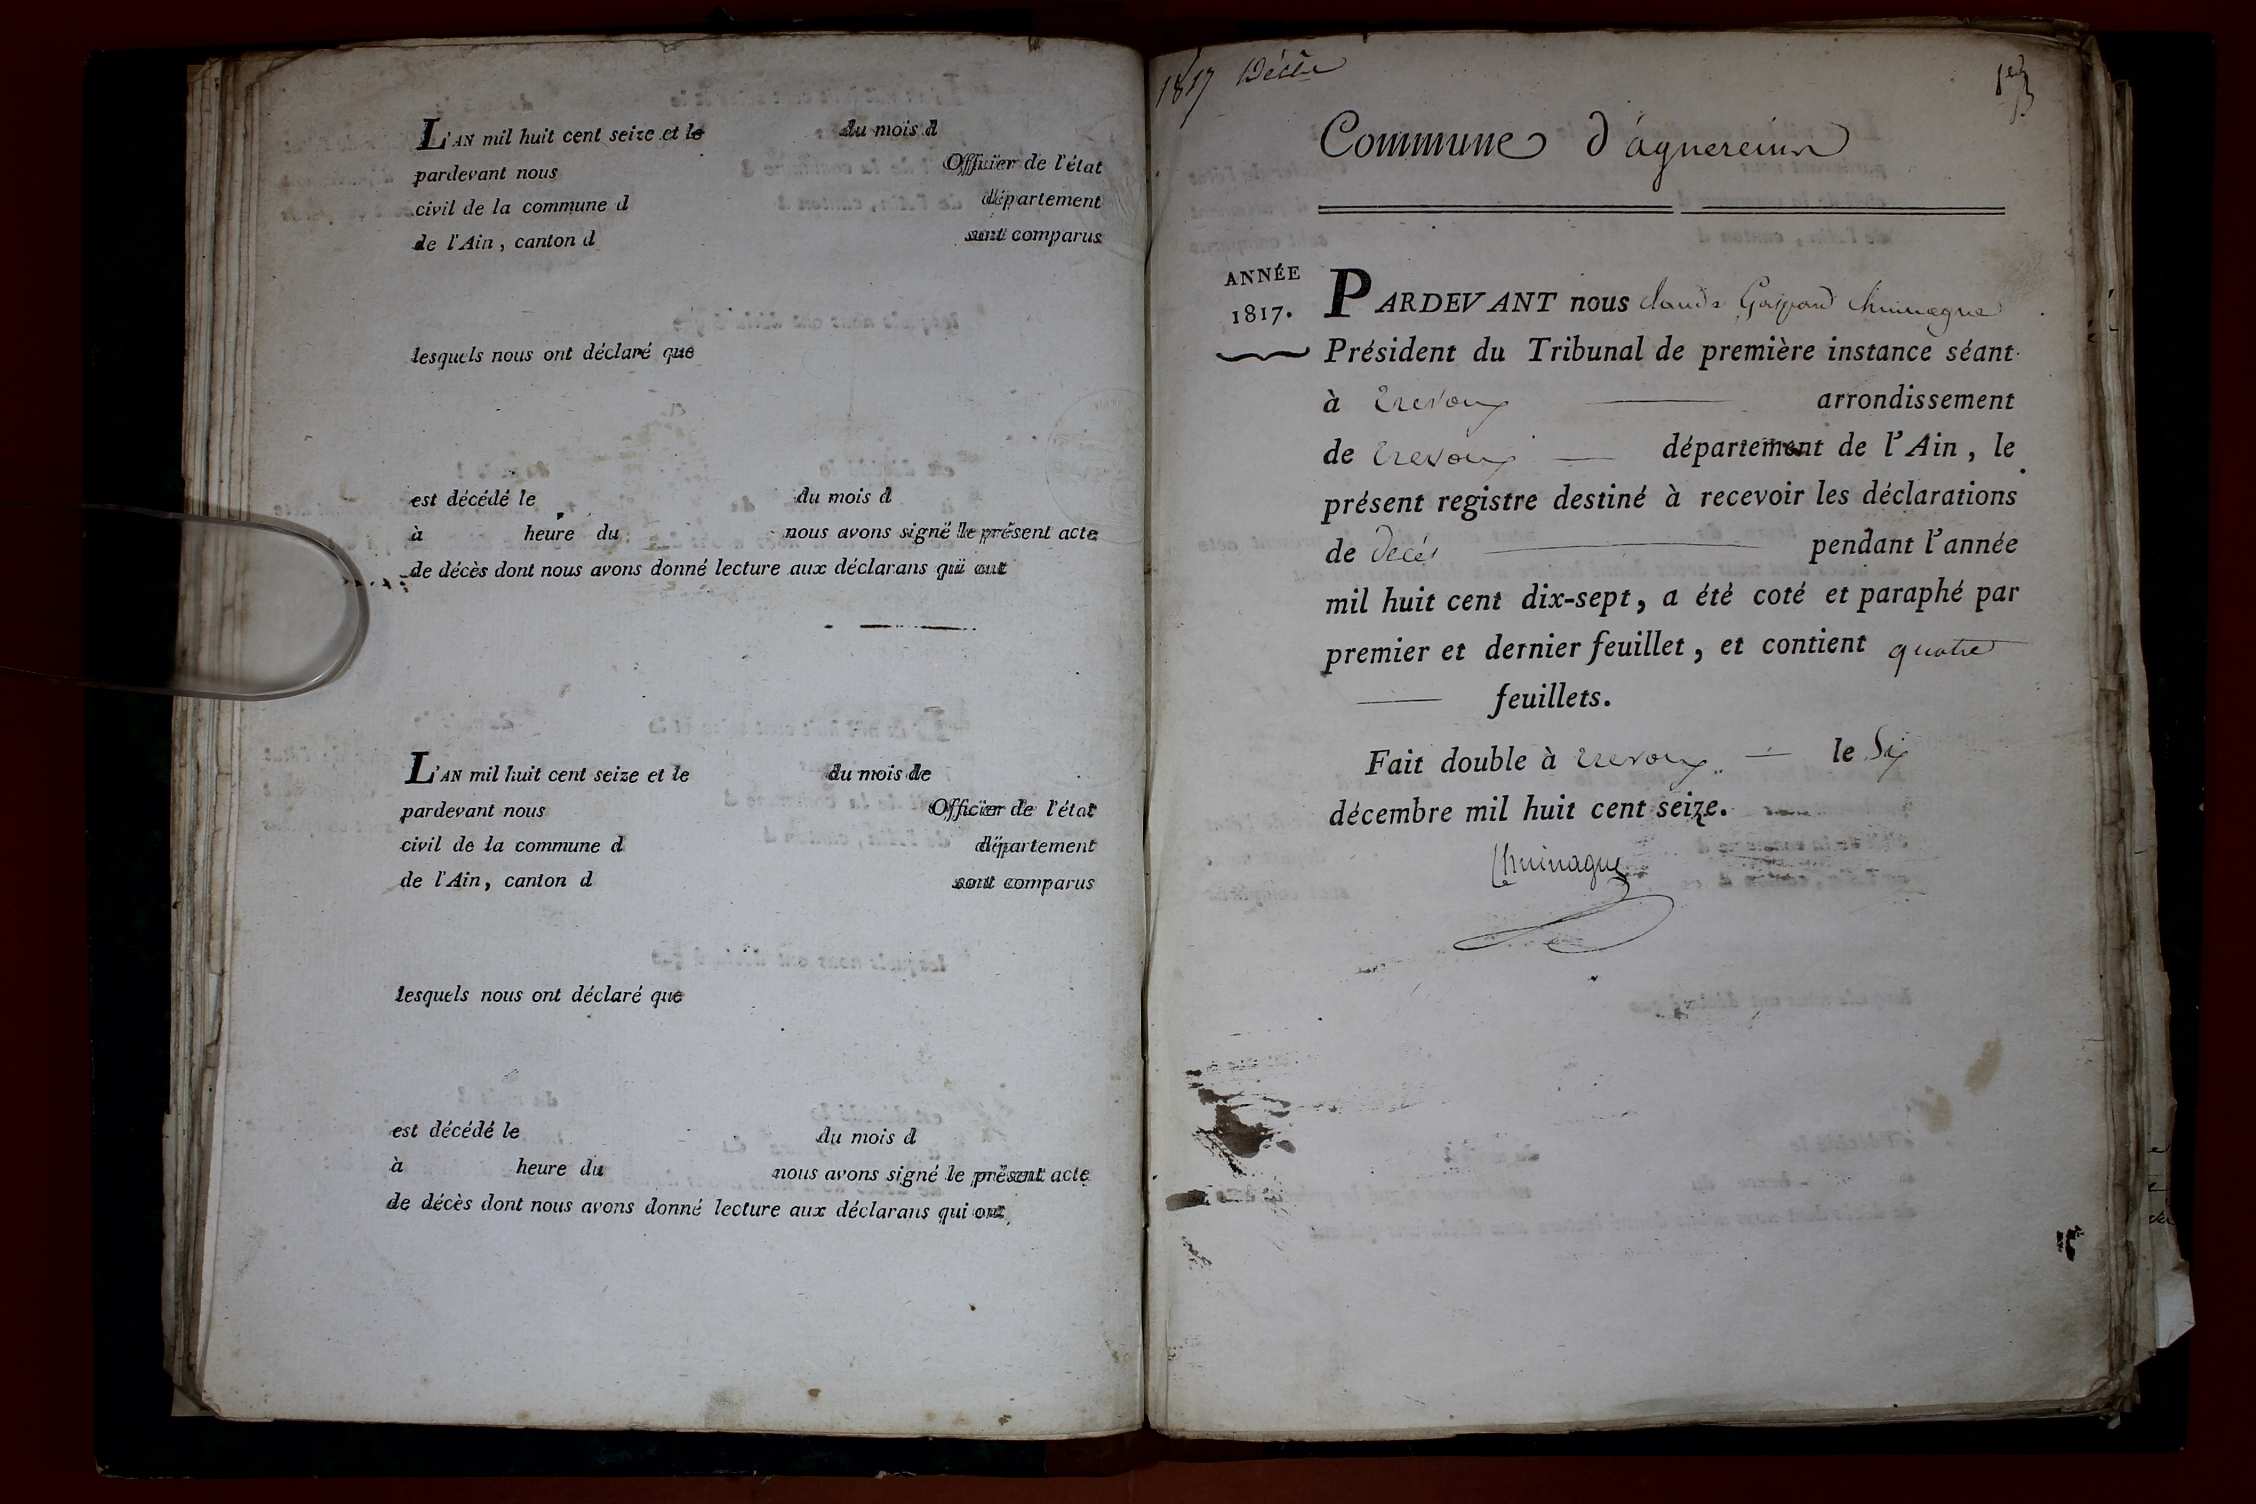 L'AN mil huit cent seize et le du mois d
pardevant nous Officier de l'état
civil de la commune d département
de l'Ain, canton d sont comparus
lesquels nous ont déclaré que
est décédé le du mois d
à heure du nous avons signé le présent acte
de décès dont nous avons donné lecture aux déclarans qui ont
L'AN mil huit cent seize et le du mois de
pardevant nous Officier de l'état
civil de la commune d département
de l'Ain, canton d sont comparus
lesquels nous ont déclaré que
est décédé le du mois d
à heure du nous avons signé le présent acte
de décès dont nous avons donné lecture aux déclarans qui ont
1817 Décès
1er
Commune d'agnereins
ANNÉE
1817.
PARDEVANT nous Claude Gaspard
Président du Tribunal de première instance séant
à trevoux arrondissement
de trevoux département de l'Ain, le
présent registre destiné à recevoir les déclarations
de décés pendant l'année
mil huit cent dix-sept, a été coté et paraphé par
premier et dernier feuillet, et contient quatre
feuillets.
Fait double à trevoux le Six
décembre mil huit cent seize.